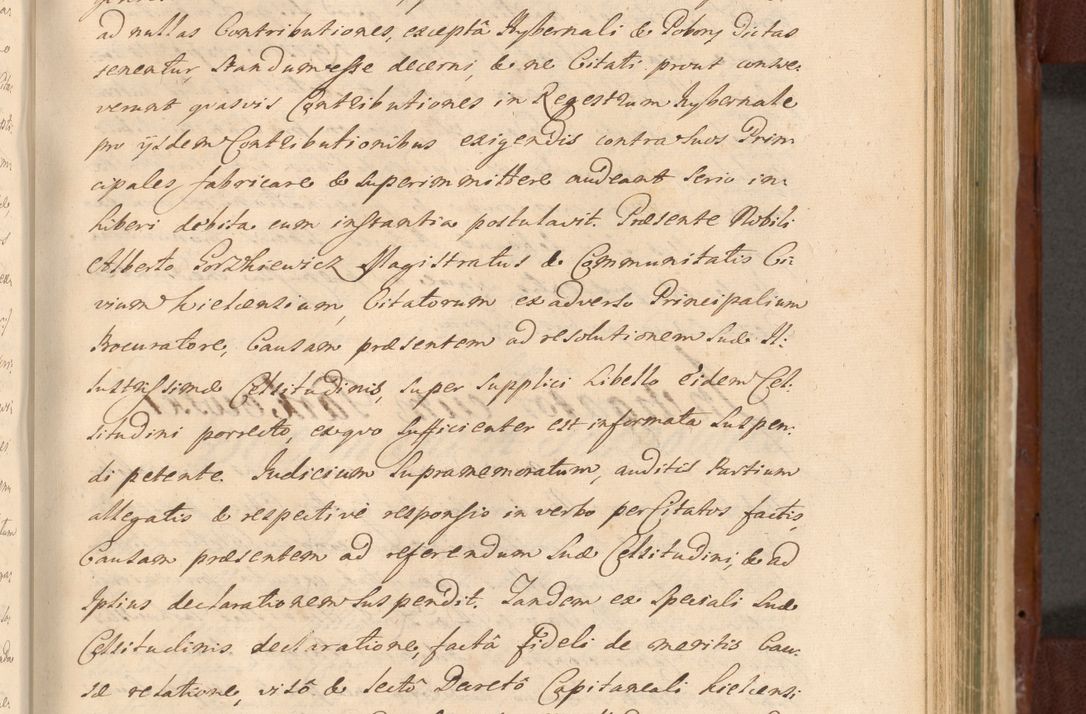 ad nullas Contributiones, exceptâ Hybernali & Pobory dictas
tenentur, Standum esse decerni, & ne Citati prout conve-
nerunt quasvis Contributiones in Regestrum Hybernale
pro ijsdem Contributionibus exigendis contra Suos Prin-
cipales, fabricare & Superimmittere audeant serio in-
hiberi debita cum instantia postulavit. Præsente Nobili
Alberto Gorzkiewicz Magistratus & Communitatis Ci-
vium Kielcensium, Citatorum ex adverso Principalium
Procuratore, Causam præsentem ad resolutionem Suæ Il-
lustrissimæ Celsitudinis, super supplici Libello eidem Cel-
situdini porrecto, ex quo sufficienter est informata suspen-
di petente. Judicium Supramemoratum, auditis Partium
allegatis & respectivè responsio in verbo per Citatos factis
Causam præsentem ad referendum Suæ Celsitudini, & ad
Ipsius declarationem Suspendit. Tandem ex speciali Suæ
Celsitudinis declaratione, factâ fideli de meritis Cau-
sæ relatione, visô & lectô Decretô Capitaneali Kielcensi